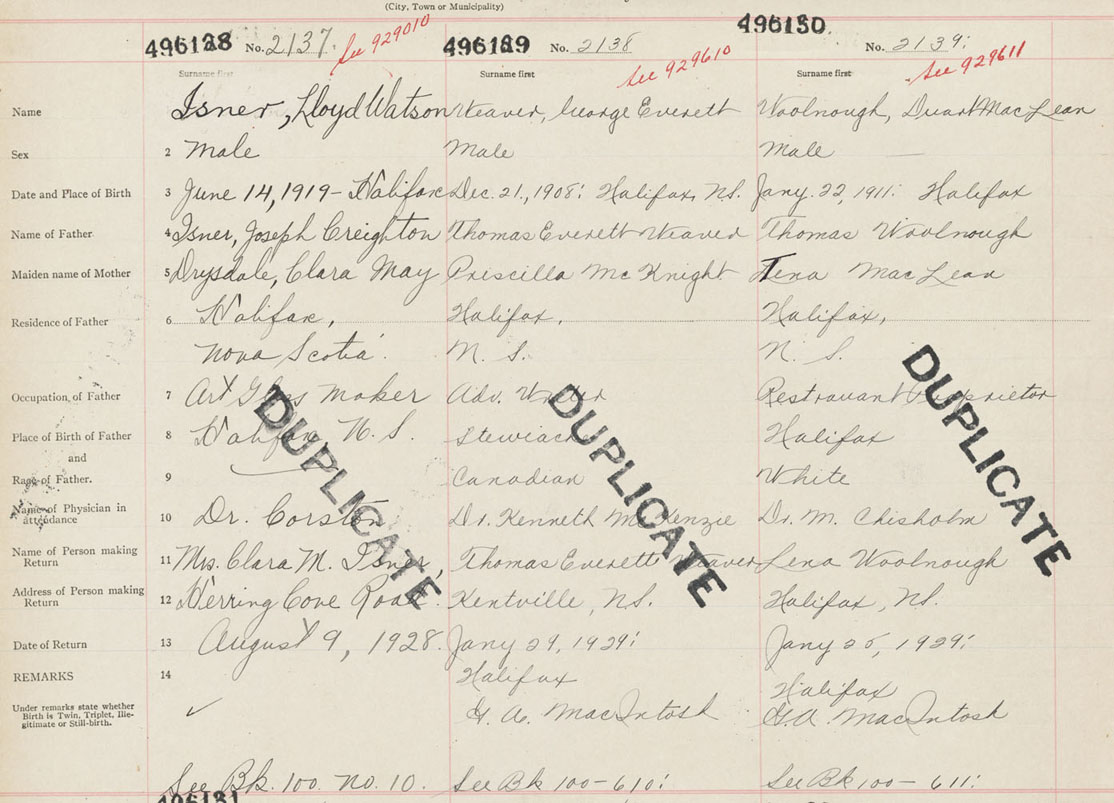 (City, Town or Municipality)
496128 No. 2137. See 929010 496129 No. 2138 See 929610 496130 No. 2139. See 929611
Surname first Surname first Surname first
Name Isner, Lloyd Watson Weaver, George Everett Woolnough, Duart MacLean
Sex 2 Male Male Male
Date and Place of Birth 3 June 14, 1919 - Halifax Dec. 21, 1908: Halifax, N.S. Jany. 22, 1911: Halifax
Name of Father 4 Isner, Joseph Creighton Thomas Everett Weaver Thomas Woolnough
Maiden name of Mother 5 Drysdale, Clara May Priscilla McKnight Lena MacLean
Residence of Father 6 Halifax, Halifax, Halifax,
Nova Scotia. N. S. N. S.
Occupation of Father 7 Art Glass Maker Adv. Writer Restravant Proprietor
Place of Birth of Father 8 Halifax N. S. Stewiacke Halifax
and
Race of Father. 9 Canadian White
Name of Physician in attendance 10 Dr. Corston Dr. Kenneth McKenzie Dr. M. Chisholm
Name of Person making Return 11 Mrs. Clara M. Isner, Thomas Everett Weaver Lena Woolnough
Address of Person making Return 12 Herring Cove Road. Kentville, N.S. Halifax, N.S.
Date of Return 13 August 9, 1928. Jany 29, 1929: Jany 25, 1929:
REMARKS 14 Halifax Halifax
Under remarks state whether Birth is Twin, Triplet, Ille-gitimate or Still-birth. ✓ G. A. MacIntosh G. A. MacIntosh
See Bk. 100. No. 10. See Bk 100-610: See Bk 100- 611:
DUPLICATE DUPLICATE DUPLICATE
496131